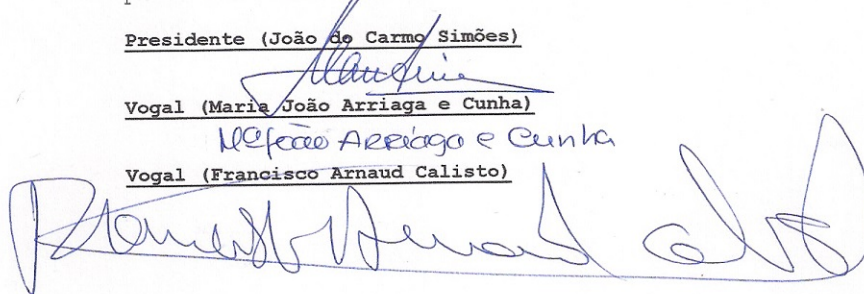 Presidente (João do Carmo Simões)
Vogal (Maria João Arriaga e Cunha)
Mª João Arriaga e Cunha
Vogal (Francisco Arnaud Calisto)
Francisco Arnaud Calisto